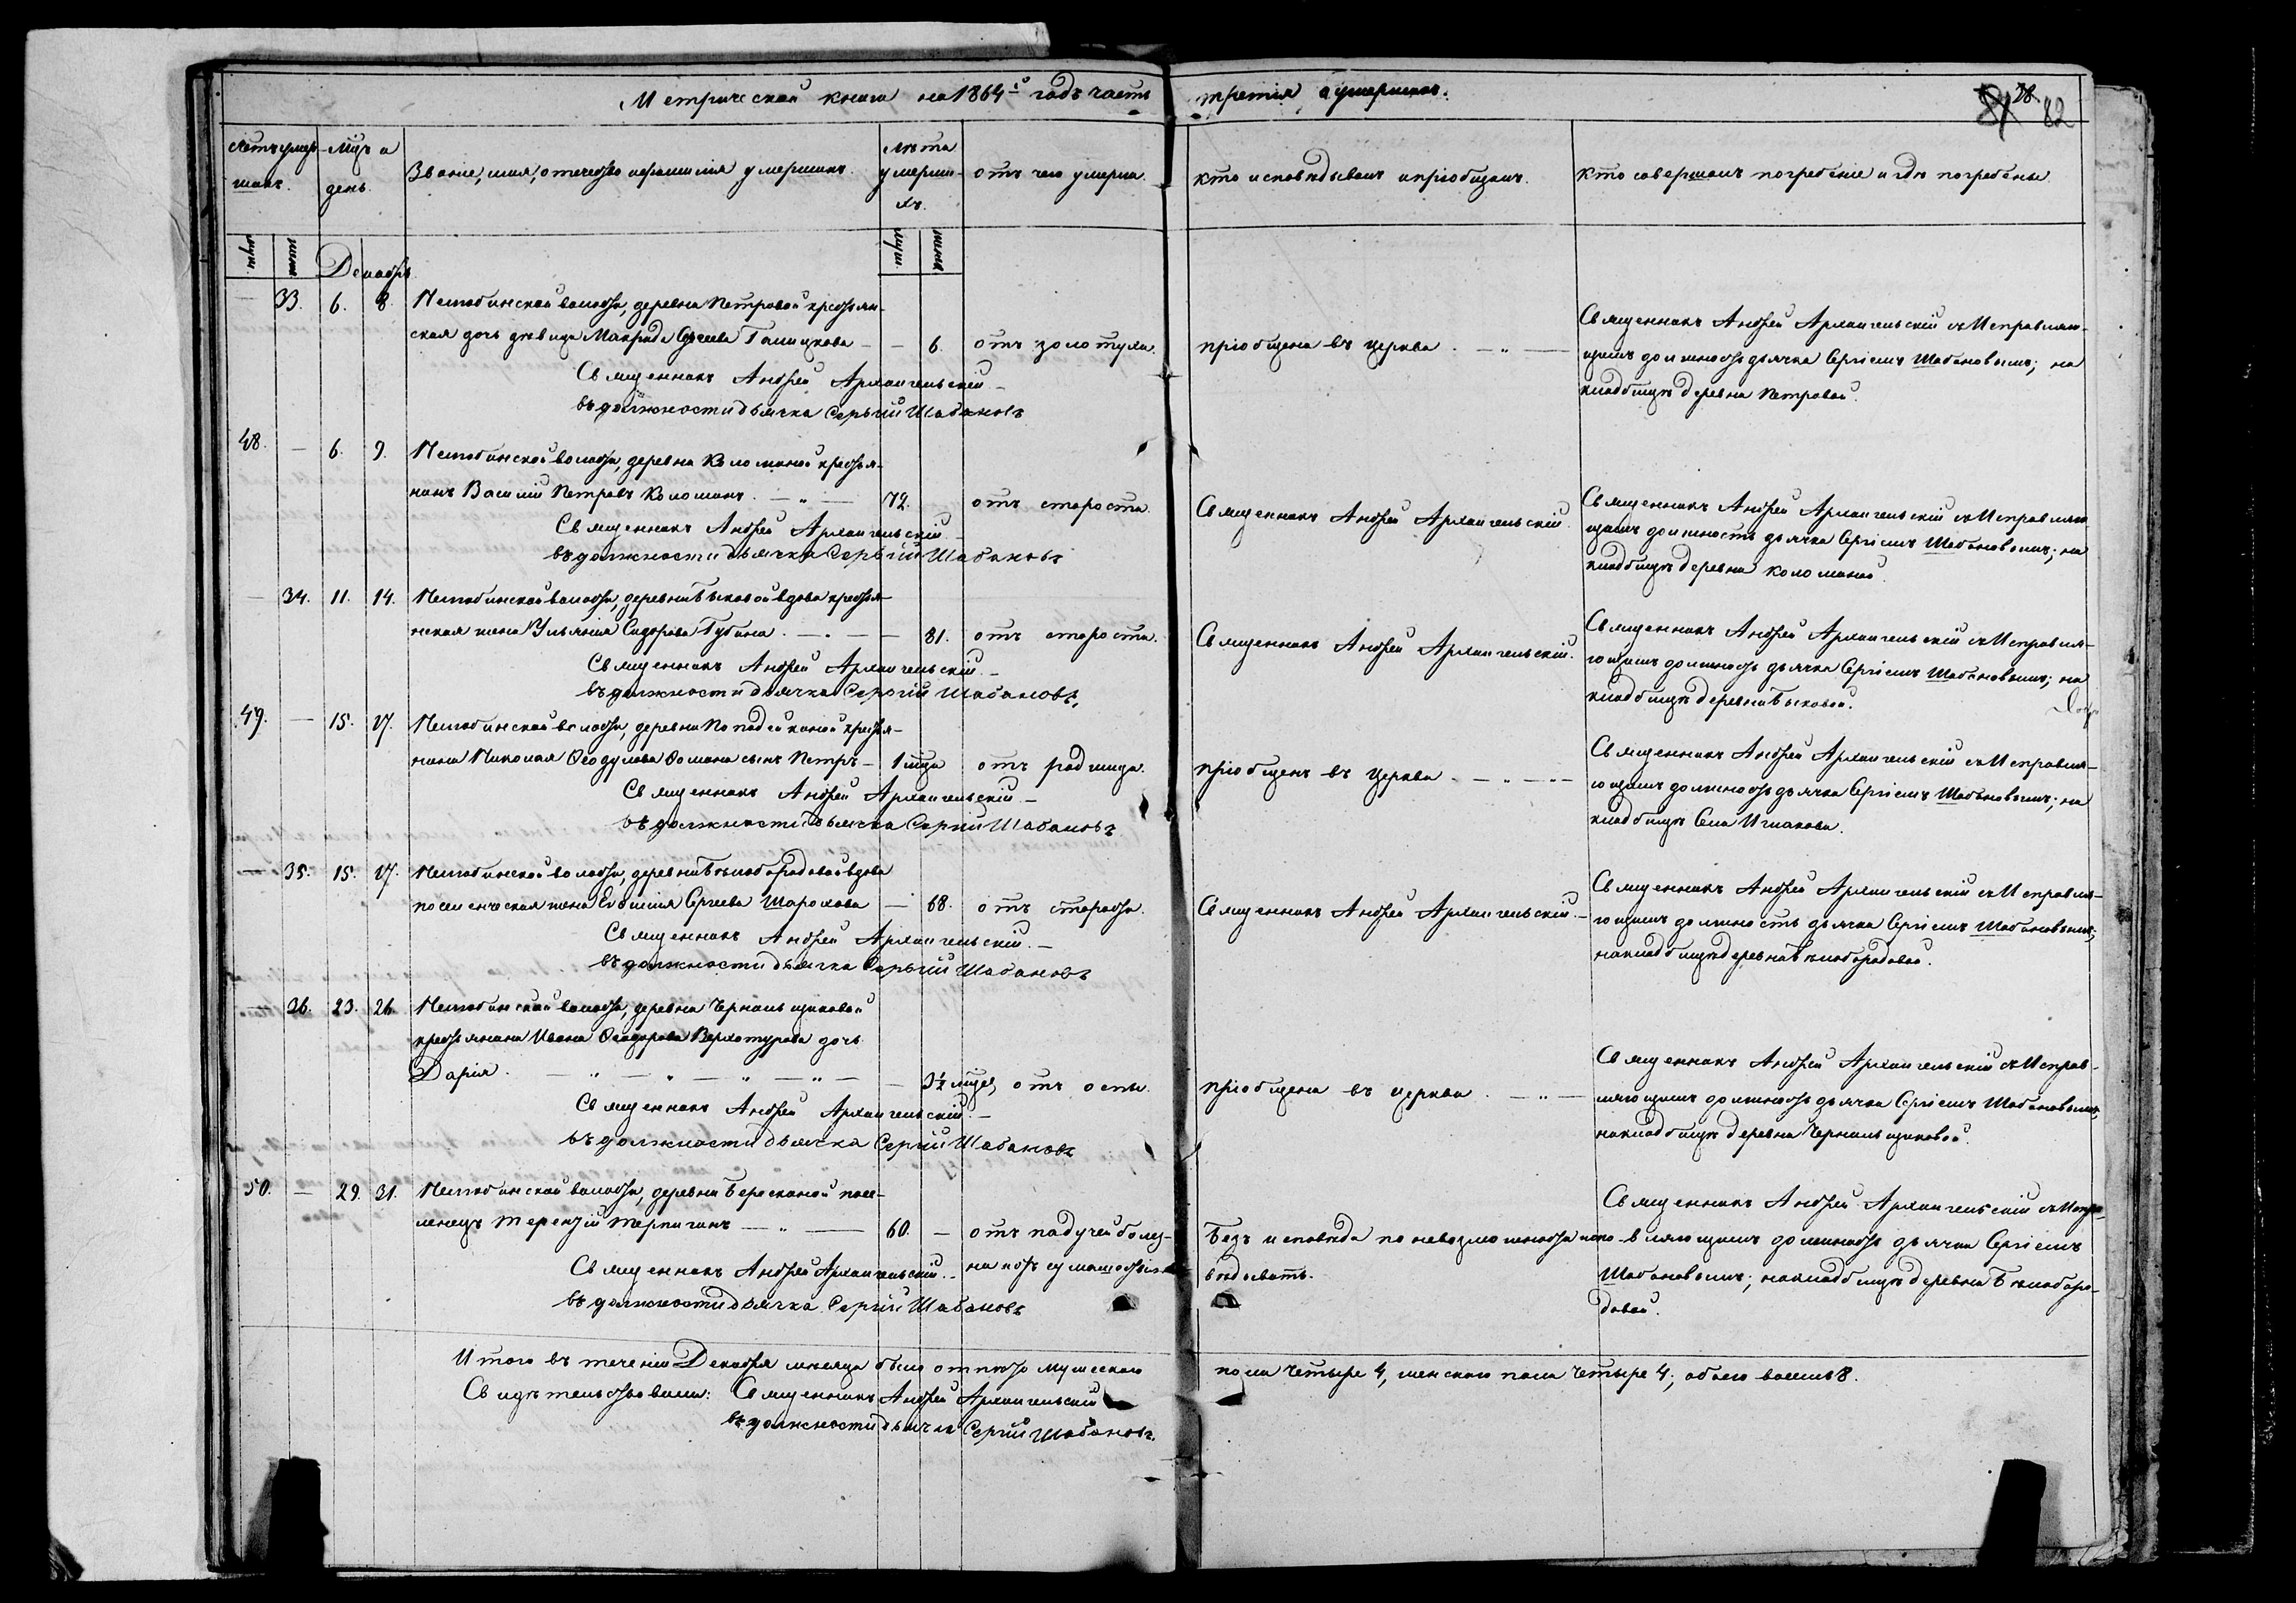 Метрической книги на 1864й годъ часть третія о умершихъ.
28.
81 82
Счетъ умер-
шихъ.
Мцъ и
день.
Званіе, имя, отечество и фамилія умершихъ.
лѣта
умерши-
хъ.
отъ чего умерли.
кто исповѣдывалъ и пріобщалъ.
кто совершалъ погребеніе и гдѣ погребены.
муж.
женс.
Декабрь.
муж.
женск
— 33. 6. 8. волости, деревни Петровой крестьян-
ская дочь дѣвица
— 6. отъ золотухи.
пріобщена въ церкви. — „ —
Священникъ Андрей Архангельскій съ Исправляю-
щимъ должность дьячка Сергіемъ Шабановымъ; на
кладбищѣ деревни Петровой.
Священникъ Андрей Архангельскій —
въ должности дьячка Сергій Шабановъ
48. — 6. 9. волости, деревни крестья-
нинъ Василій Петровъ — „ —
72. отъ старости.
Священникъ Андрей Архангельскій.
Священникъ Андрей Архангельскій съ Исправляю-
щимъ должность дьячка Сергіемъ Шабановымъ; на
кладбищѣ деревни
Священникъ Андрей Архангельскій. —
въ должности дьячка Сергій Шабановъ
— 34. 11. 14. волости, деревни Быковой вдова крестья-
нская жена Ульянія Сидорова Губина. — „ —
— 81. отъ старости.
Священникъ Андрей Архангельскій.
Священникъ Андрей Архангельскій съ Исправля-
ющимъ должность дьячка Сергіемъ Шабановымъ; на
кладбищѣ деревни Быковой.
Священникъ Андрей Архангельскій. —
въ должности дьячка Сергій Шабановъ.
49. — 15. 17. волости, деревни крестья-
нина Николая сынъ Петръ —
1 мца отъ родимца.
пріобщенъ въ церкви. — „ —
Священникъ Андрей Архангельскій съ Исправля-
ющимъ должность дьячка Сергіемъ Шабановымъ; на
кладбищѣ Села
Священникъ Андрей Архангельскій. —
въ должности дьячка Сергій Шабановъ
— 35. 15. 17. волости, деревни Бѣлобородовой вдова
поселенческая жена Евфимія Сергеева Шарохова
— 68. отъ старости.
Священникъ Андрей Архангельскій. —
Священникъ Андрей Архангельскій съ Исправля-
ющимъ должность дьячка Сергіемъ Шабановымъ;
на кладбищѣ деревни Бѣлобородовой.
Священникъ Андрей Архангельскій. —
въ должности дьячка Сергій Шабановъ
— 36. 23. 26. волости, деревни Чернильщиковой
крестьянина Ивана Ѳеодорова Верхотурова дочь
Дарія. — „ — „ — „ — „ —
— 3½ мцев, отъ оспы.
пріобщена въ церкви. — „ —
Священникъ Андрей Архангельскій съ Исправ-
ляющимъ должность дьячка Сергіемъ Шабановымъ,
на кладбищѣ деревни Чернильщиковой.
Священникъ Андрей Архангельскій. —
въ должности дьячка Сергій Шабановъ
50. — 29. 31. волости, деревни посе-
ленецъ Терентій — „ —
60. — отъ падучей болез-
ни
Безъ исповѣди по невозможности испо-
вѣдывать.
Священникъ Андрей Архангельскій съ Испра-
вляющимъ должность дьячка Сергіемъ
Шабановымъ; на кладбищѣ деревни Бѣлоборо-
довой.
Священникъ Андрей Архангельскій. —
въ должности дьячка Сергій Шабановъ
Итого въ теченіи Декабря месяца было отпето мужескаго пола четыре 4, женскаго пола четыре 4; обоего восемь 8.
Свидѣтельствовали: Священникъ Андрей Архангельскій
въ должности дьячка Сергій Шабановъ.